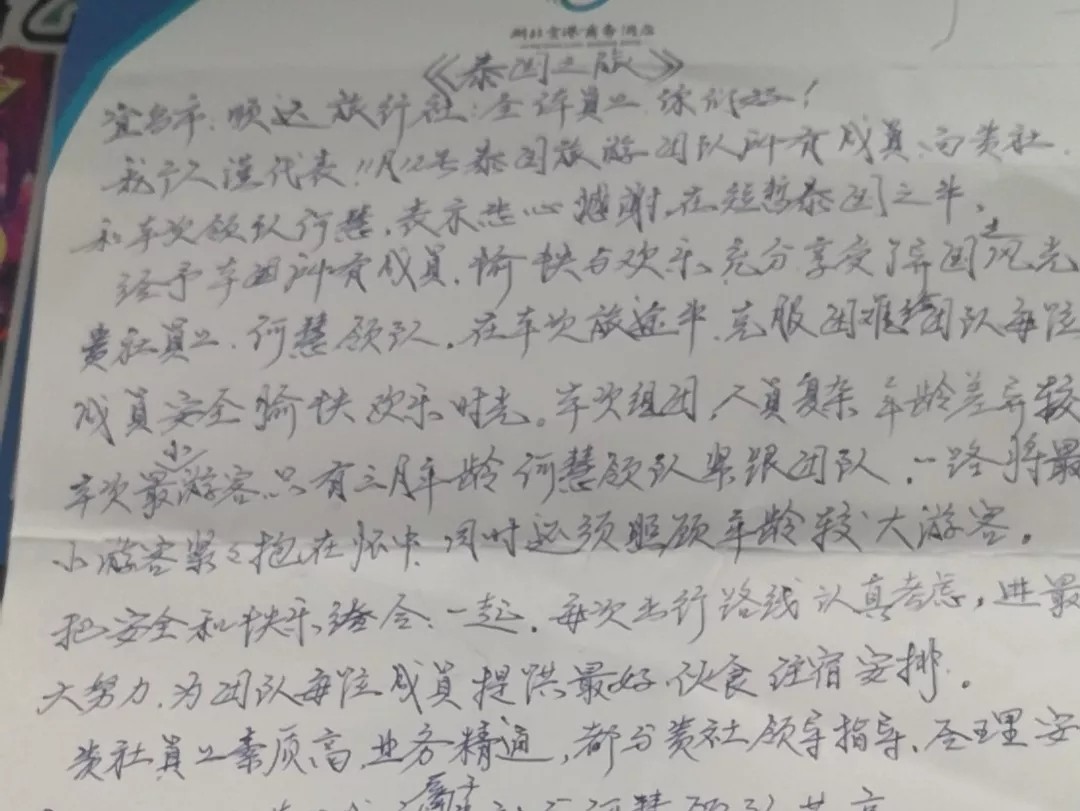 湖北云港商务酒店
《泰国之旅》
宜昌市:顺达旅行社:全许员工:你们好!
我个人谨代表11月12号泰国旅游团队所有成员,向贵社
和本次领队何慧,表示热心感谢,在短暂泰国之中,
给予本团所有成员,愉快与欢乐,充分享受了异国风土光
贵社员工,何慧领队,在本次旅途中,克服困难给团队每位
成员安全愉快欢乐时光。本次组团,人员复杂 年龄差异较
本次最小游客,只有三月年龄 何慧领队紧跟团队,一路将最
小游客紧々抱在怀中,同时必须照顾年龄较大游客。
把安全和快乐结合一起,每次出行路线认真考虑,进最
大努力,为团队每位成员提供最好伙食住宿安排。
贵社员工素质高,业务精通,都与贵社领导指导,合理安
何慧领队